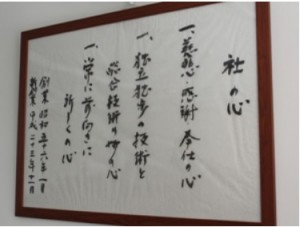 社の心
一、熱心・感謝 奉仕の心
一、独立独歩の技術と
総合技術の和の心
一、常に前向きに
新しくの心
創業 昭和五十六年一月
移業 平成二十三年十一月